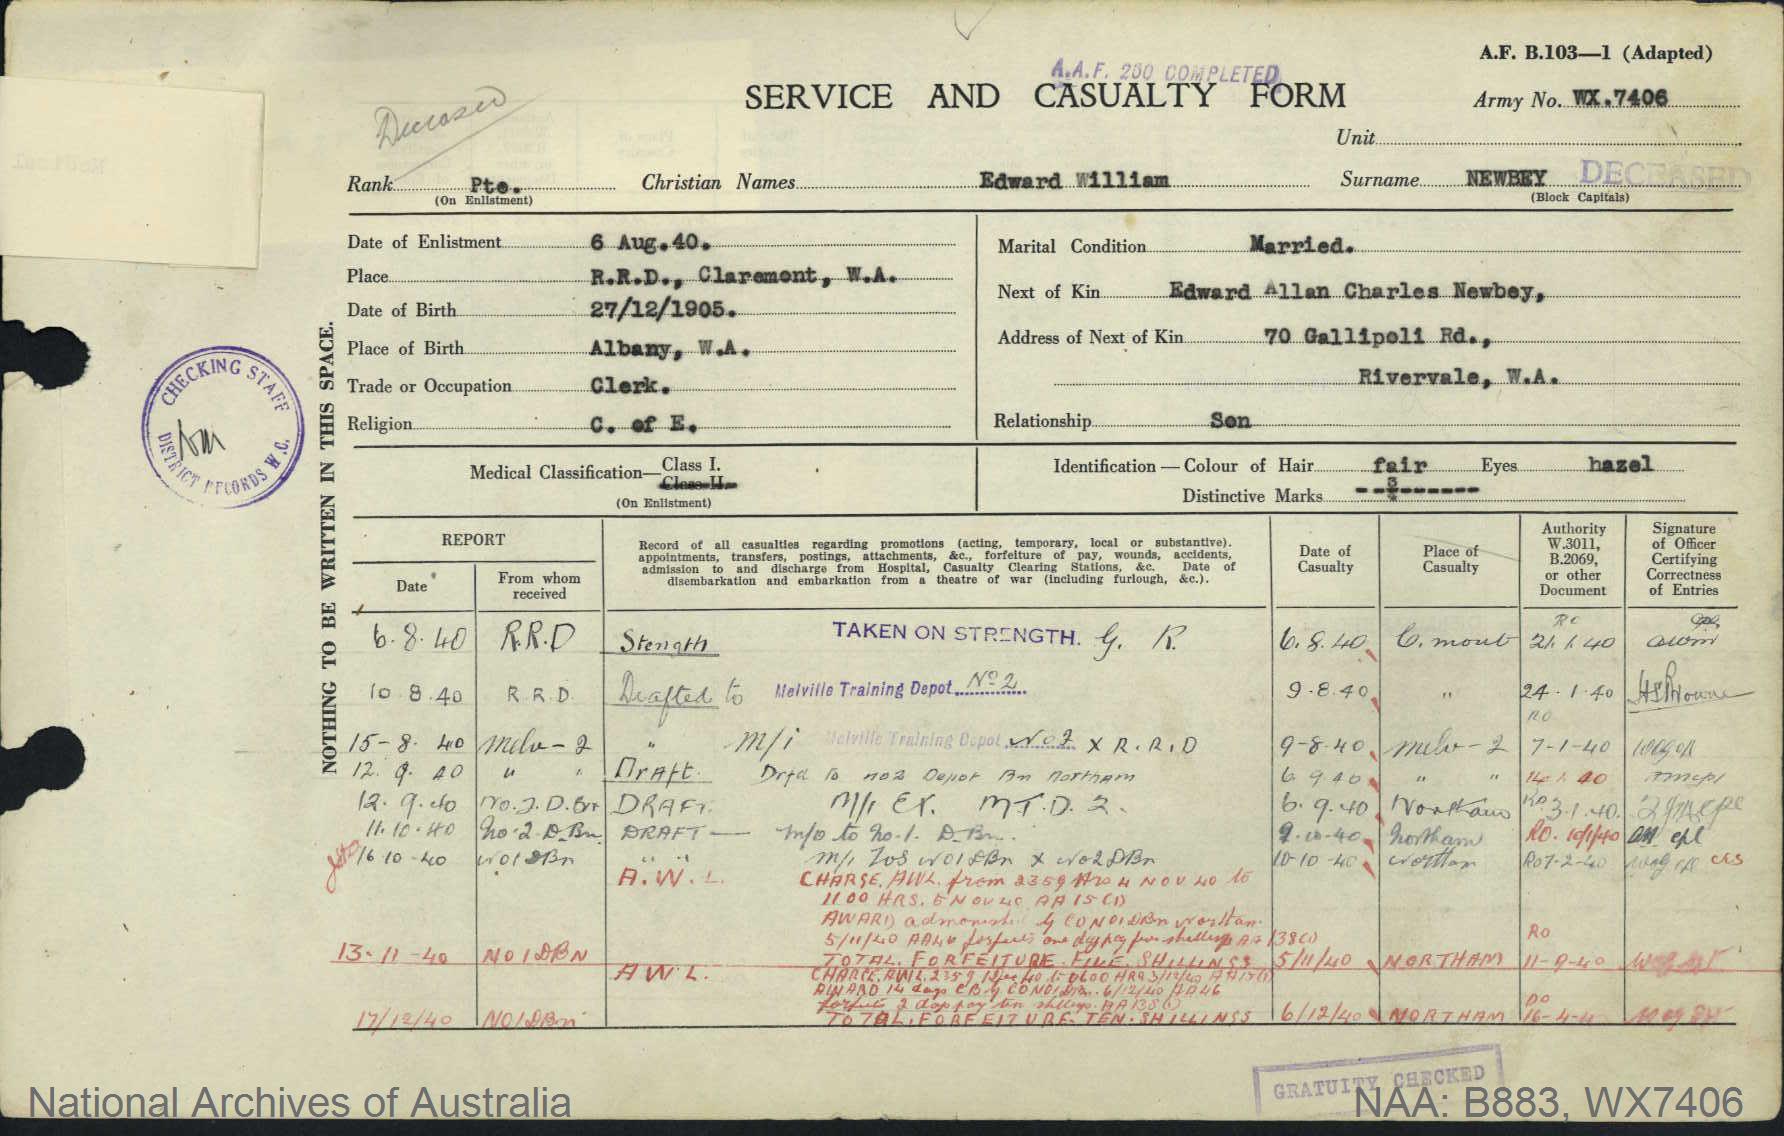 A.F. B.103—1 (Adapted)
A.A.F. 200 COMPLETED
SERVICE AND CASUALTY FORM
Army No. WX.7406
Deceased
Unit
Rank Pte. Christian Names Edward William Surname NEWBEY DECEASED
(On Enlistment) (Block Capitals)
Date of Enlistment 6 Aug.40.
Place R.R.D., Claremont, W.A.
Date of Birth 27/12/1905.
Place of Birth Albany, W.A.
Trade or Occupation Clerk.
Religion C. of E.
Marital Condition Married.
Next of Kin Edward Allan Charles Newbey,
Address of Next of Kin 70 Gallipoli Rd.,
Rivervale, W.A.
Relationship Son
Medical Classification— Class I.
Class II.
(On Enlistment)
Identification — Colour of Hair fair Eyes hazel
Distinctive Marks
NOTHING TO BE WRITTEN IN THIS SPACE.
CHECKING STAFF
DISTRICT RECORDS W.C.
REPORT
Date
From whom received
Record of all casualties regarding promotions (acting, temporary, local or substantive).
appointments, transfers, postings, attachments, &c., forfeiture of pay, wounds, accidents,
admission to and discharge from Hospital, Casualty Clearing Stations, &c. Date of
disembarkation and embarkation from a theatre of war (including furlough, &c.).
Date of Casualty
Place of Casualty
Authority W.3011, B.2069, or other Document
Signature of Officer Certifying Correctness of Entries
6.8.40 R.R.D Stength TAKEN ON STRENGTH. G. R. 6.8.40 C.mont RO 21.1.40
10 8.40 R.R.D. Drafted to Melville Training Depot No 2 9.8.40 " 24.1.40 HSBrowne
15-8.40 Melv-2 " M/i Melville Training Depot No 2 X R.R.D 9-8-40 Melv-2 RO 7-1-40
12.9.40 " " Draft. Drfd to No2 Depot Bn Northam 6.9.40 " " 14.1.40
12.9.40 No.2.D.Bn DRAFT. M/i EX. M.T.D. 2. 6.9.40 Northam RO 3.1.40.
11.10.40 No.2.D.Bn DRAFT — M/o to No.1. D.Bn. 9.10.40 Northam RO. 10/1/40 Cpl
16 10-40 No1DBn " " M/i TOS No1DBn X No2DBn 10-10-40 Northam RO7-2-40
A.W.L. CHARGE. AWL. from 2359 Hrs 4 NOV 40 to
1100 HRS. 5 NOV 40 AA 15(1)
AWARD admonished by CO NO1DBn Northam.
5/11/40 AA46 forfeits one days pay five shillings AA 138(1)
13-11-40 NO1DBN TOTAL. FORFEITURE. FIVE. SHILLINGS 5/11/40 NORTHAM RO 11-9-40
A.W.L. CHARGE. AWL 2359 1 Dec 40 to 0600 HRS 3/12/40 AA15(1)
AWARD 14 days CB by CO NO1DBn. 6/12/40 AA46
forfeits 2 days pay ten shillings AA138(1)
17/12/40 NO1DBn TOTAL. FORFEITURE. TEN. SHILLINGS 6/12/40 NORTHAM 16-4-4
GRATUITY CHECKED
National Archives of Australia
NAA: B883, WX7406